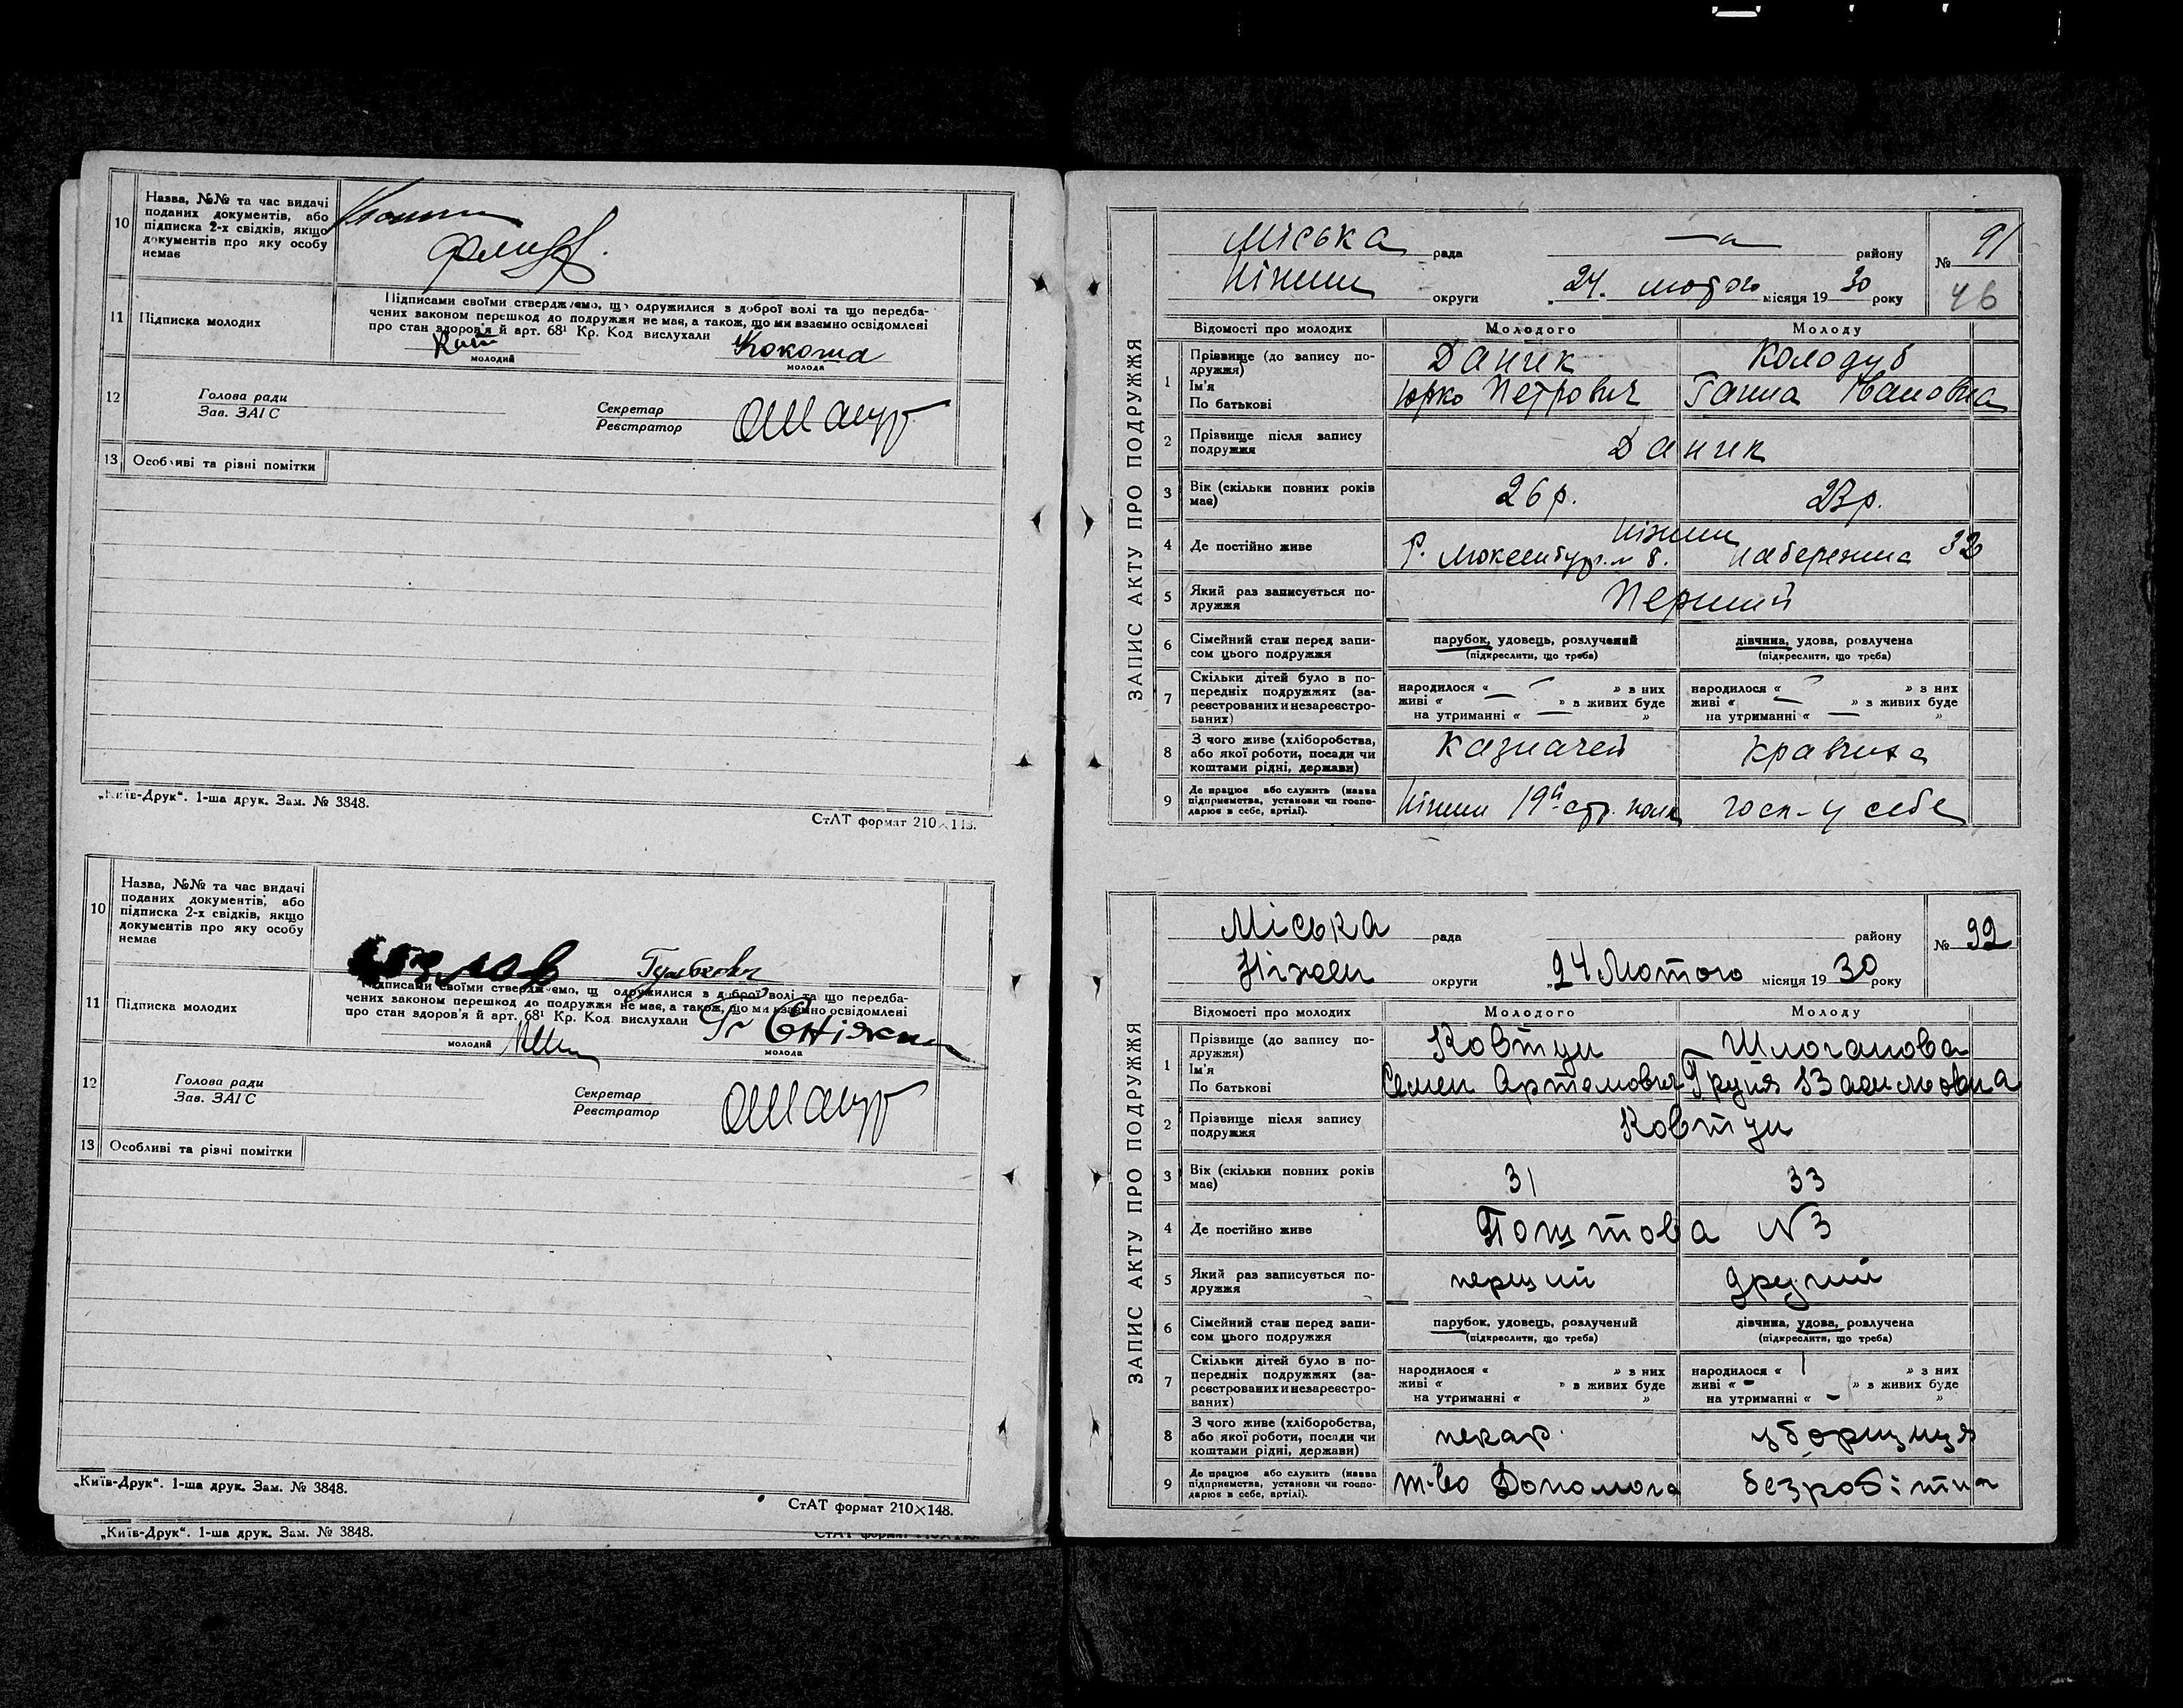 10
Назва, №№ та час видачі
поданих документів, або
підписка 2-х свідків, якщо
документів про яку особу
немає
11
Підписка молодих
Підписами своїми стверджуємо, що одружилися з доброї волі та що передба-
чених законом перешкод до подружжя не має, а також, що ми взаємно освідомлені
про стан здоров'я й арт. 68¹ Кр. Код вислухали
молодий
Кокоша
молода
12
Голова ради
Зав. ЗАГС
Секретар
Реєстратор
13
Особливі та різні помітки
„Київ-Друк“. 1-ша друк. Зам. № 3848.
СтАТ формат 210×148.
10
Назва, №№ та час видачі
поданих документів, або
підписка 2-х свідків, якщо
документів про яку особу
немає
11
Підписка молодих
Підписами своїми стверджуємо, що одружилися з доброї волі та що передба-
чених законом перешкод до подружжя не має, а також, що ми взаємно освідомлені
про стан здоров'я й арт. 68¹ Кр. Код вислухали
молодий
молода
12
Голова ради
Зав. ЗАГС
Секретар
Реєстратор
13
Особливі та різні помітки
„Київ-Друк“. 1-ша друк. Зам. № 3848.
СтАТ формат 210×148.
„Київ-Друк“. 1-ша друк. Зам. № 3848.
ЗАПИС АКТУ ПРО ПОДРУЖЖЯ
Міська рада району
№ 91
Ніжин округи „24. лютого місяця 1930 року
46
Відомості про молодих Молодого Молоду
1 Прізвище (до запису по-
дружжя) Данчек Колодуб
Ім'я
По батькові Юрко Петрович Ганна Івановна
2 Прізвище після запису
подружжя Данчек
3 Вік (скільки повних років
має) 26 р. 23 р.
4 Де постійно живе Ніжин
Р. Люксембур. № 8. Набережна 32
5 Який раз записується по-
дружжя Перший
6 Сімейний стан перед запи-
сом цього подружжя
парубок, удовець, розлучений
(підкреслити, що треба)
дівчина, удова, розлучена
(підкреслити, що треба)
7 Скільки дітей було в по-
передніх подружжях (за-
реєстрованих и незареєстро-
ваних)
народилося « — » з них
живі « » в живих буде
на утриманні « — »
народилося « — » з них
живі « » з живих буде
на утриманні « — »
8 З чого живе (хліборобства,
або якої роботи, посади чи
коштами рідні, держави) Казначей Кравчиха
9 Де працює або служить (назва
підприємства, установи чи госпо-
дарює в себе, артілі). Ніжин 19й стр. полк госп-у себе
ЗАПИС АКТУ ПРО ПОДРУЖЖЯ
Міська рада району
№ 92
Ніжен округи „24 Лютого місяця 1930 року
Відомості про молодих Молодого Молоду
1 Прізвище (до запису по-
дружжя) Ковтун Шлоганова
Ім'я
По батькові Семен Артемович Груня
2 Прізвище після запису
подружжя Ковтун
3 Вік (скільки повних років
має) 31 33
4 Де постійно живе Поштова № 3
5 Який раз записується по-
дружжя перший другий
6 Сімейний стан перед запи-
сом цього подружжя
парубок, удовець, розлучений
(підкреслити, що треба)
дівчина, удова, розлучена
(підкреслити, що треба)
7 Скільки дітей було в по-
передніх подружжях (за-
реєстрованих и незареєстро-
ваних)
народилося « » з них
живі « » в живих буде
на утриманні « »
народилося « 1 » з них
живі « - » з живих буде
на утриманні « - »
8 З чого живе (хліборобства,
або якої роботи, посади чи
коштами рідні, держави) пекар уборщиця
9 Де працює або служить (назва
підприємства, установи чи госпо-
дарює в себе, артілі). т-во Допомога безробітна